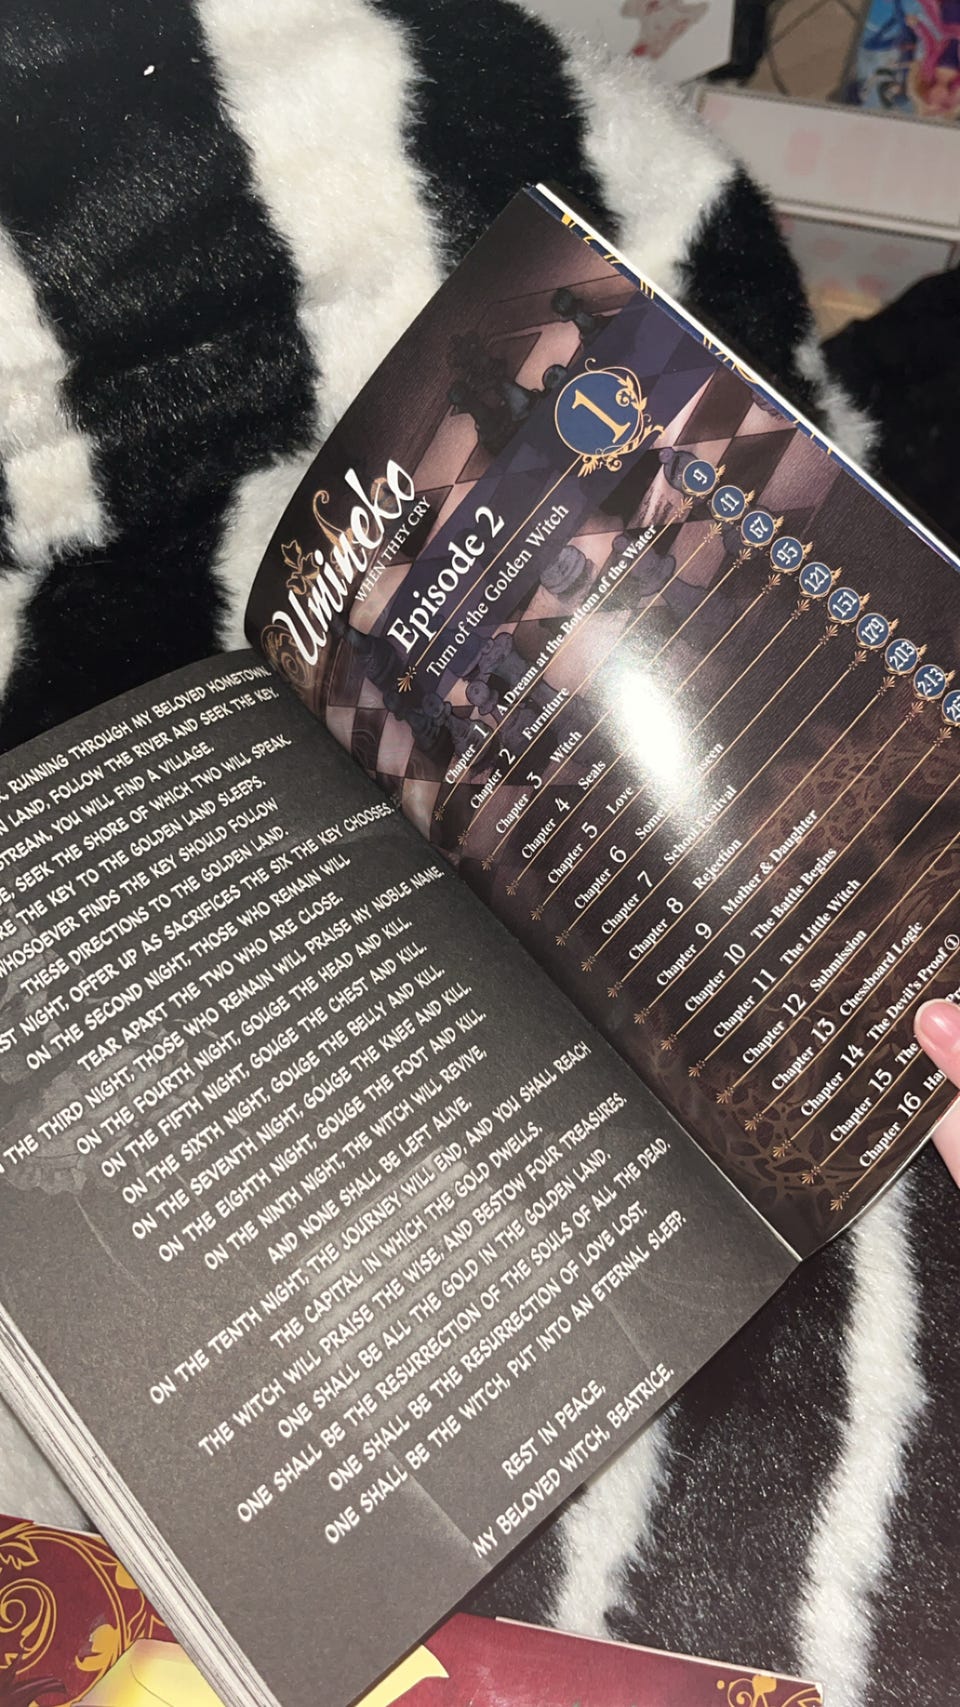 RUNNING THROUGH MY BELOVED HOMETOWN,
LAND, FOLLOW THE RIVER AND SEEK THE KEY.
YOU WILL FIND A VILLAGE.
SEEK THE SHORE OF WHICH TWO WILL SPEAK.
THE KEY TO THE GOLDEN LAND SLEEPS.
WHOSOEVER FINDS THE KEY SHOULD FOLLOW
THESE DIRECTIONS TO THE GOLDEN LAND.
NIGHT, OFFER UP AS SACRIFICES THE SIX THE KEY CHOOSES.
ON THE SECOND NIGHT, THOSE WHO REMAIN WILL
TEAR APART THE TWO WHO ARE CLOSE.
THE THIRD NIGHT, THOSE WHO REMAIN WILL PRAISE MY NOBLE NAME.
ON THE FOURTH NIGHT, GOUGE THE HEAD AND KILL.
ON THE FIFTH NIGHT, GOUGE THE CHEST AND KILL.
ON THE SIXTH NIGHT, GOUGE THE BELLY AND KILL.
ON THE SEVENTH NIGHT, GOUGE THE KNEE AND KILL.
ON THE EIGHTH NIGHT, GOUGE THE FOOT AND KILL.
ON THE NINTH NIGHT, THE WITCH WILL REVIVE,
AND NONE SHALL BE LEFT ALIVE.
ON THE TENTH NIGHT, THE JOURNEY WILL END, AND YOU SHALL REACH
THE CAPITAL IN WHICH THE GOLD DWELLS.
THE WITCH WILL PRAISE THE WISE, AND BESTOW FOUR TREASURES.
ONE SHALL BE ALL THE GOLD IN THE GOLDEN LAND.
ONE SHALL BE THE RESURRECTION OF THE SOULS OF ALL THE DEAD.
ONE SHALL BE THE RESURRECTION OF LOVE LOST.
ONE SHALL BE THE WITCH, PUT INTO AN ETERNAL SLEEP.
REST IN PEACE,
MY BELOVED WITCH, BEATRICE.
Umineko
WHEN THEY CRY
Episode 2
Turn of the Golden Witch
1
Chapter 1 A Dream at the Bottom of the Water 9
Chapter 2 Furniture 41
Chapter 3 Witch 67
Chapter 4 Seals 95
Chapter 5 Love 121
Chapter 6 151
Chapter 7 School Festival 179
Chapter 8 Rejection 203
Chapter 9 Mother & Daughter 243
Chapter 10 The Battle Begins
Chapter 11 The Little Witch
Chapter 12 Submission
Chapter 13 Chessboard Logic
Chapter 14 The Devil's Proof ①
Chapter 15 The
Chapter 16